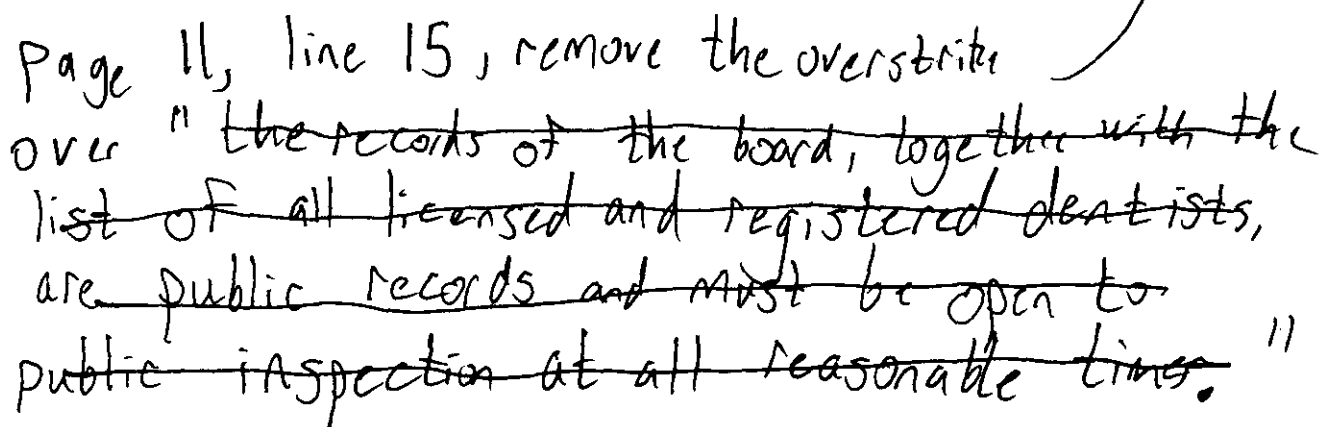 page 11, line 15, remove the overstrike
over "the records of the board, together with the
list of all licensed and registered dentists,
are public records and must be open to
public inspection at all reasonable times."